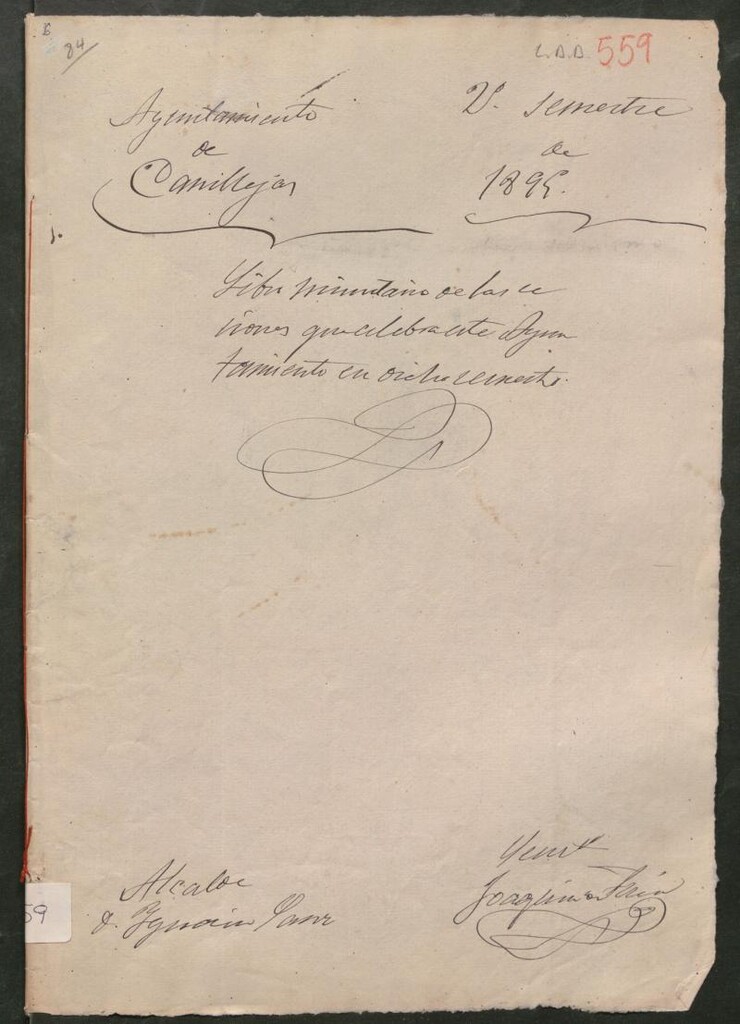 84
L.D.D. 559
Ayuntamiento
de
Canillejas
2º. semestre
de
1895.
Libro minutario de las se
siones que celebra este Ayun
tamiento en dicho semestre.
Alcalde
D. Ygnacio Sanz
Joaquin
59